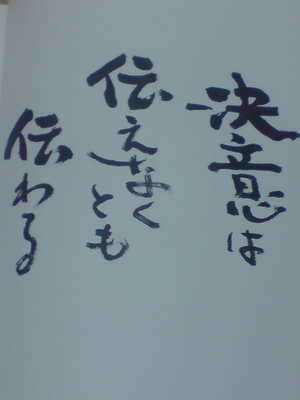 決意は
伝えなくとも
伝わる